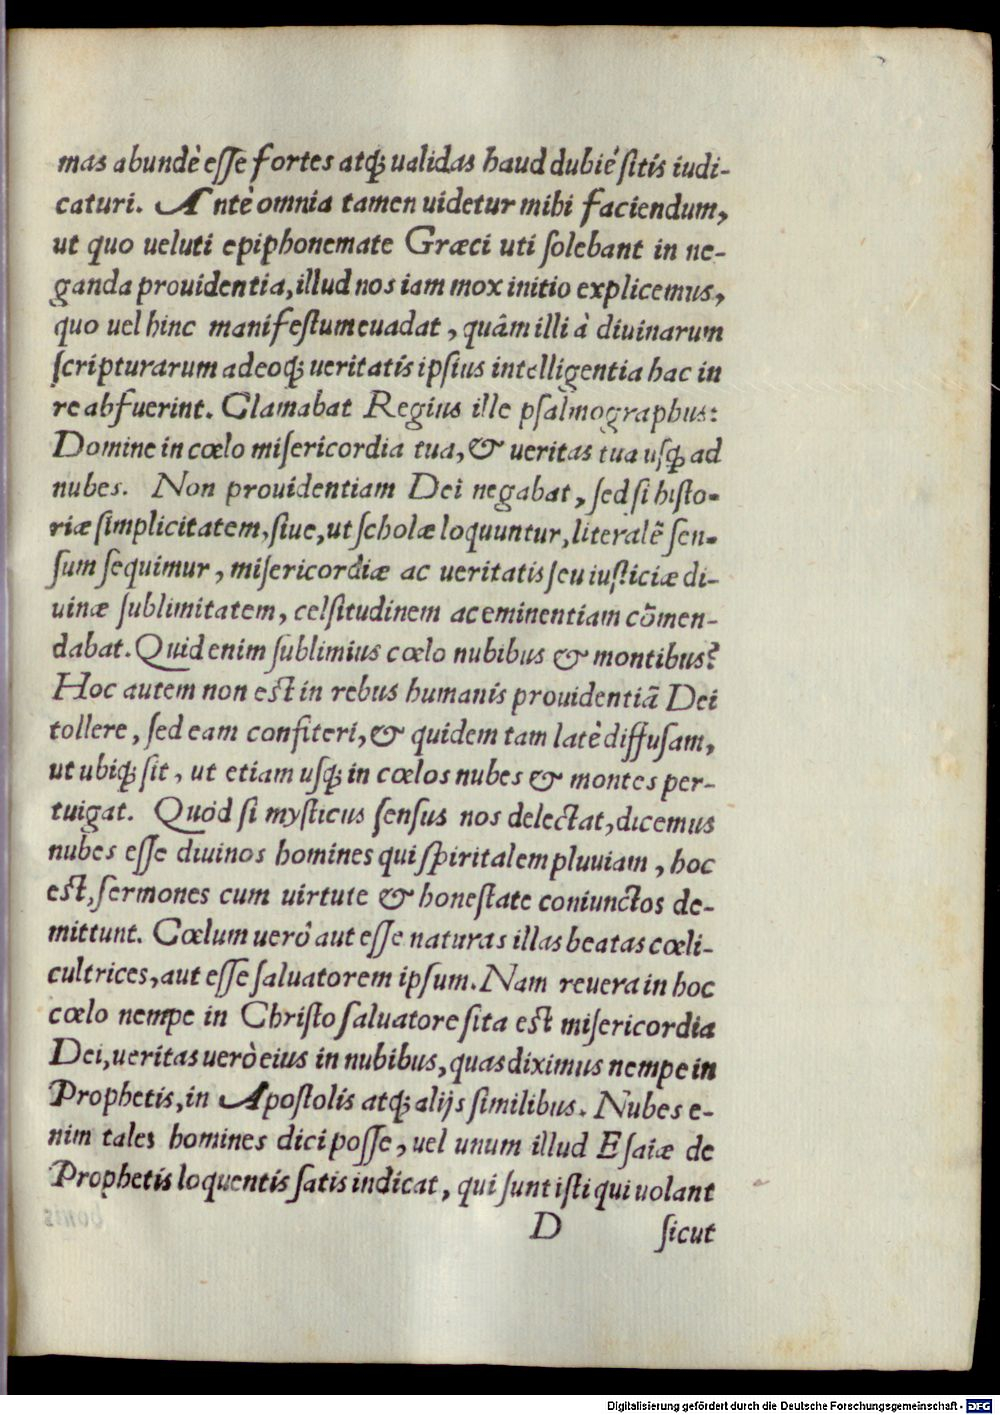 mas abundè eſſe fortes atq; ualidas haud dubié ſitis iudi-
caturi. Antè omnia tamen uidetur mihi faciendum,
ut quo ueluti epiphonemate Græci uti ſolebant in ne-
ganda prouidentia, illud nos iam mox initio explicemus,
quo uel hinc manifeſtum euadat, quâm illi à diuinarum
ſcripturarum adeoq; ueritatis ipſius intelligentia hac in
re abfuerint. Clamabat Regius ille pſalmographus:
Domine in cœlo miſericordia tua, & ueritas tua uſq; ad
nubes. Non prouidentiam Dei negabat, ſed ſi hiſto-
riæ ſimplicitatem, ſiue, ut ſcholæ loquuntur, literalẽ ſen-
ſum ſequimur, miſericordiæ ac ueritatis ſeu iuſticiæ di-
uinæ ſublimitatem, celſitudinem ac eminentiam cõmen-
dabat. Quid enim ſublimius cœlo nubibus & montibus?
Hoc autem non eſt in rebus humanis prouidentiã Dei
tollere, ſed eam confiteri, & quidem tam latè diffuſam,
ut ubiq; ſit, ut etiam uſq; in cœlos nubes & montes per-
tuigat. Quòd ſi myſticus ſenſus nos delectat, dicemus
nubes eſſe diuinos homines qui ſpiritalem pluuiam, hoc
eſt, ſermones cum uirtute & honeſtate coniunctos de-
mittunt. Cœlum uerò aut eſſe naturas illas beatas cœli-
cultrices, aut eſſe ſaluatorem ipſum. Nam reuera in hoc
cœlo nempe in Chriſto ſaluatore ſita eſt miſericordia
Dei, ueritas uerò eius in nubibus, quas diximus nempe in
Prophetis, in Apoſtolis atq; alijs ſimilibus. Nubes e-
nim tales homines dici poſſe, uel unum illud Eſaiæ de
Prophetis loquentis ſatis indicat, qui ſunt iſti qui uolant
D ſicut
Digitalisierung gefördert durch die Deutsche Forschungsgemeinschaft - DFG